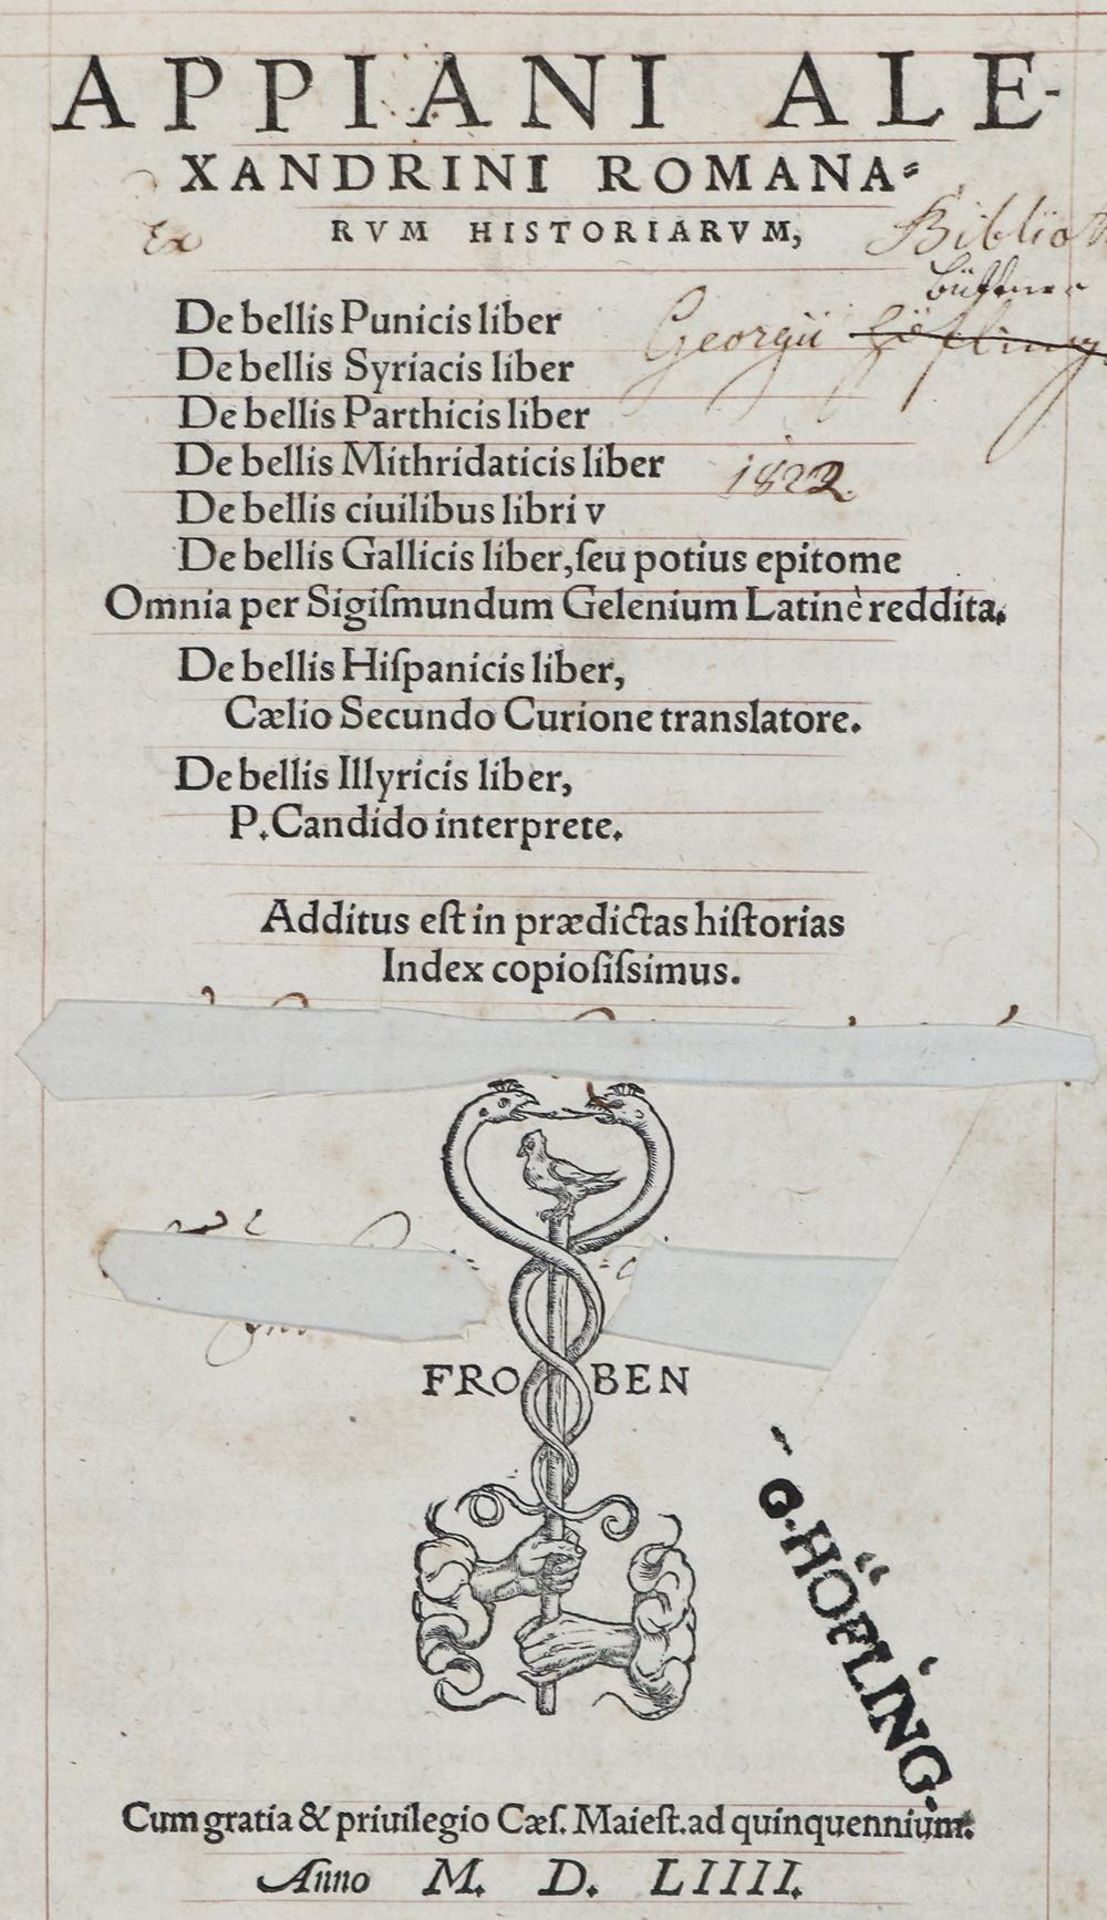 APPIANI ALE-
XANDRINI ROMANA-
RVM HISTORIARVM,
Ex Bibliot
Büttner
Georgii Höfling
De bellis Punicis liber
De bellis Syriacis liber
De bellis Parthicis liber
De bellis Mithridaticis liber
1822.
De bellis ciuilibus libri v
De bellis Gallicis liber, ſeu potius epitome
Omnia per Sigiſmundum Gelenium Latinè reddita.
De bellis Hiſpanicis liber,
Cælio Secundo Curione translatore.
De bellis Illyricis liber,
P. Candido interprete.
Additus eſt in prædictas hiſtorias
Index copioſiſsimus.
FRO BEN
G. HÖFLING.
Cum gratia & priuilegio Cæſ. Maieſt. ad quinquennium.
Anno M. D. LIIII.